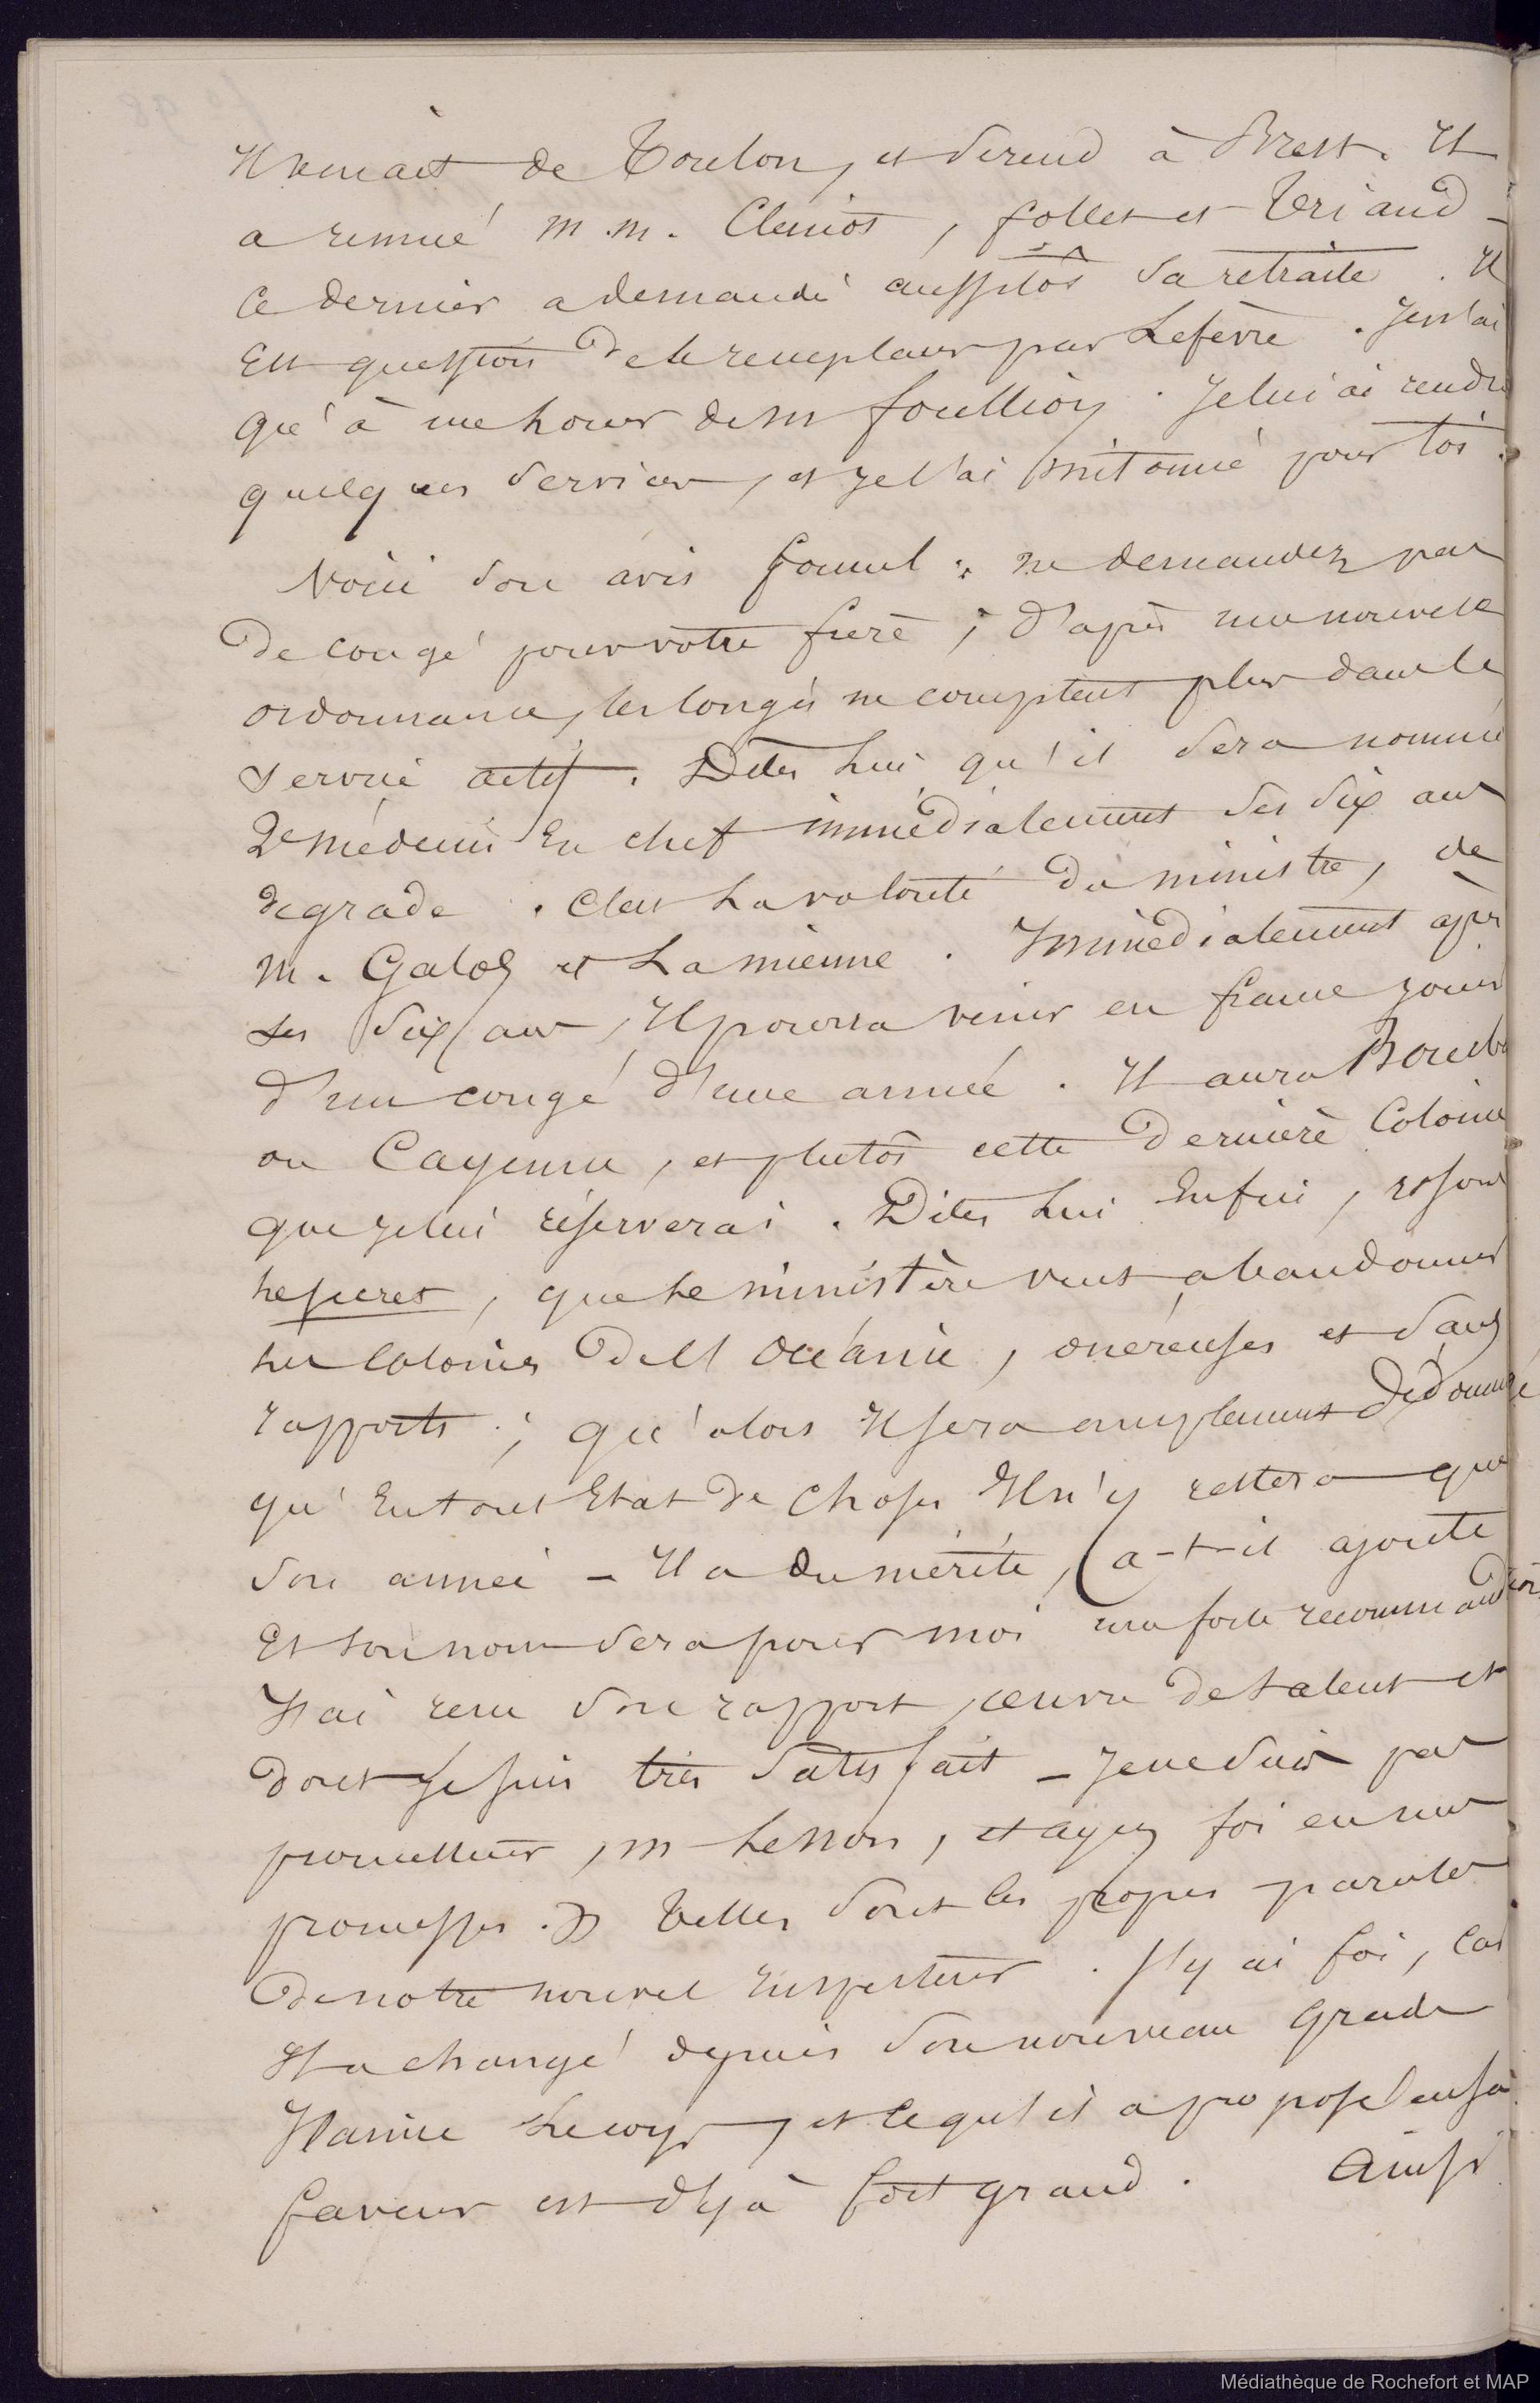 Il venait de Toulon, et se rend à Brest. Il
a remué M.M. Clemot, follet et Triaud –
Ce dernier a demandé aussitôt sa retraite. Il
Est question de le remplacer par Lefèvre. Je n'ai
qu'à me louer de M foullioy. Je lui ai rendu
quelques services, et je l'ai mitonné pour toi.
Voici son avis formel : ne demandez pas
De congé pour votre frère ; d'après une nouvelle
ordonnance, les congés ne comptent plus dans le
service actif. Dites lui qu'il sera nommé
2e médecin En chef immédiatement ses dix ans
de grade. C'est la volonté du ministre, de
M. Galos et La mienne. Immédiatement après
ses dix ans, Il pourra venir en france jouir
d'un congé d'une année. Il aura Bourbon
ou Cayenne, et plutôt cette Dernière Colonie
que je lui réserverai. Dites Lui Enfin, et sous
le secret, que le ministère veut abandonner
les Colonies De l'Océanie, onéreuses et sans
rapports ; qu'alors Il sera amplement Dédommagé
qu'En tout Etat de choses Il n'y restera que
son année – Il a du mérite, (a-t-il ajouté
Et son nom sera pour moi une forte recommandation
J'ai reçu son rapport, œuvre de talent et
Dont Je suis très satisfait – Je ne suis pas
prometteur, M Lesson, et ayez foi en mes
promesses. » Telles sont les propres paroles
De notre nouvel Inspecteur. J'y ai foi, Car
Il a changé depuis son nouveau Grade
Il aime Le corps, et ce qu'il a proposé en sa
faveur est déjà fort grand. Ainsi
Médiathèque de Rochefort et MAP